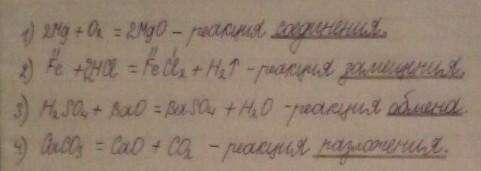 1) 2Mg + O₂ = 2MgO - реакция соединения.
2) Fe + 2HCl = FeCl₂ + H₂↑ - реакция замещения.
3) H₂SO₄ + BaO = BaSO₄ + H₂O - реакция обмена
4) CaCO₃ = CaO + CO₂ - реакция разложения.